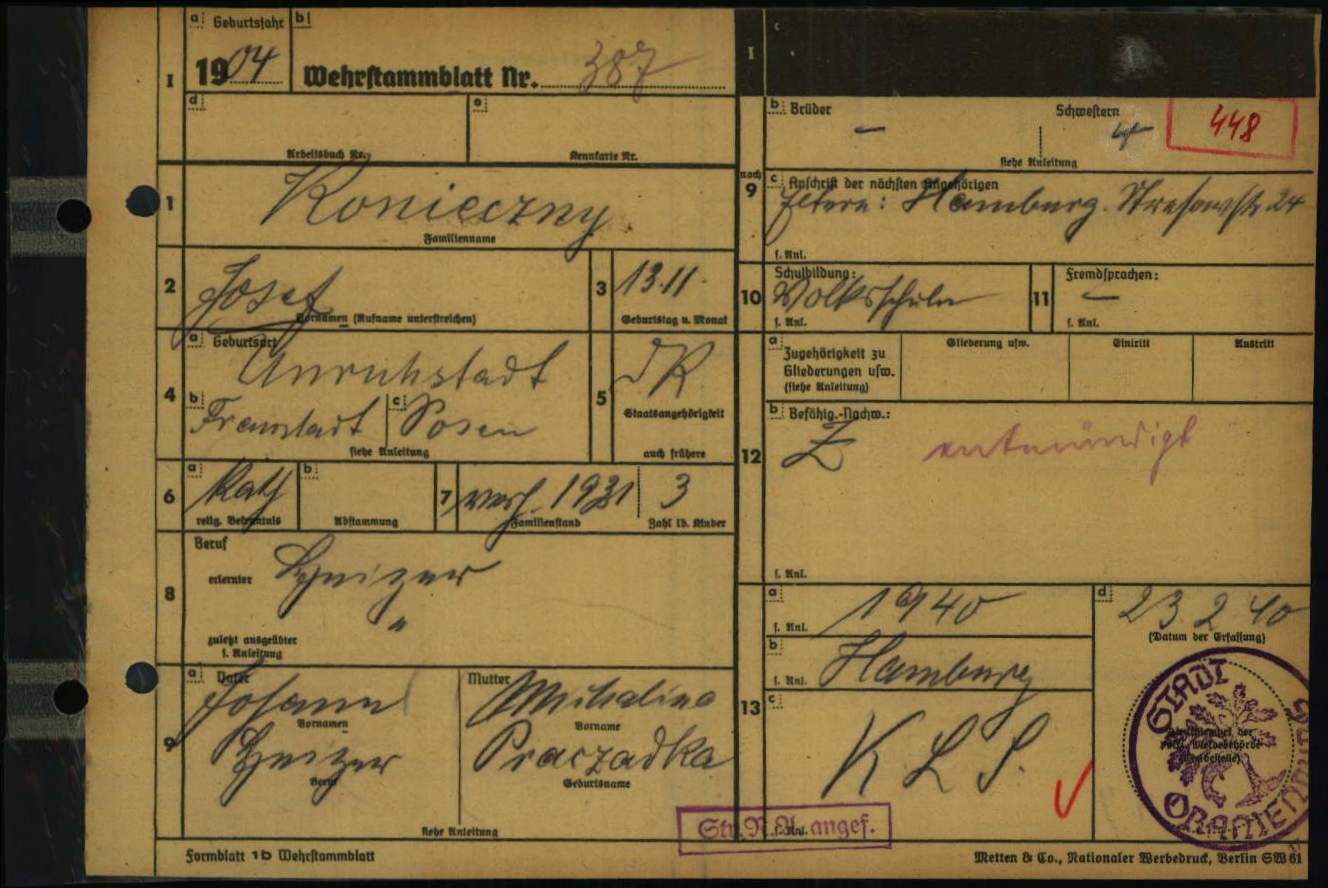 I
a Geburtsjahr b
1904 Wehrstammblatt Nr. 387
d e
Arbeitsbuch Nr. Kennkarte Nr.
1 Konieczny
Familienname
2 Josef
Vornamen (Rufname unterstreichen)
3 13.11.
Geburtstag u. Monat
4 a Geburtsort
Unruhstadt
b Fraustadt c Posen
siehe Anleitung
5 dR
Staatsangehörigkeit
auch frühere
6 a Kath b
relig. Bekenntnis Abstammung
7 verh. 1931 3
Familienstand Zahl lb. Kinder
8 Beruf
erlernter Heizer
"
zuletzt ausgeübter
s. Anleitung
9
a Vater Mutter
Johann Mikalina
Vornamen Vorname
Heizer Praczadka
Beruf Geburtsname
siehe Anleitung
Formblatt 1b Wehrstammblatt
I c
b Brüder Schwestern
– 4
siehe Anleitung
448
noch 9
c Anschrift der nächsten Angehörigen
Eltern: Hamburg. 24
s. Anl.
10 Schulbildung:
Volksschule
s. Anl.
11 Fremdsprachen:
–
s. Anl.
12
a Zugehörigkeit zu Gliederung usw. Eintritt Austritt
Gliederungen usw.
(siehe Anleitung)
b Befähig.-Nachw.:
Z entmündigt
s. Anl.
13
a 1940
s. Anl.
b Hamburg
s. Anl.
c K L S.
s. Anl.
d 23.2.40
(Datum der Erfassung)
STADT ORANIENBURG
Dienststempel der
poliz. Meldebehörde
(Meldestelle)
Str. R. A. angef.
Metten & Co., Nationaler Werbedruck, Berlin SW 61